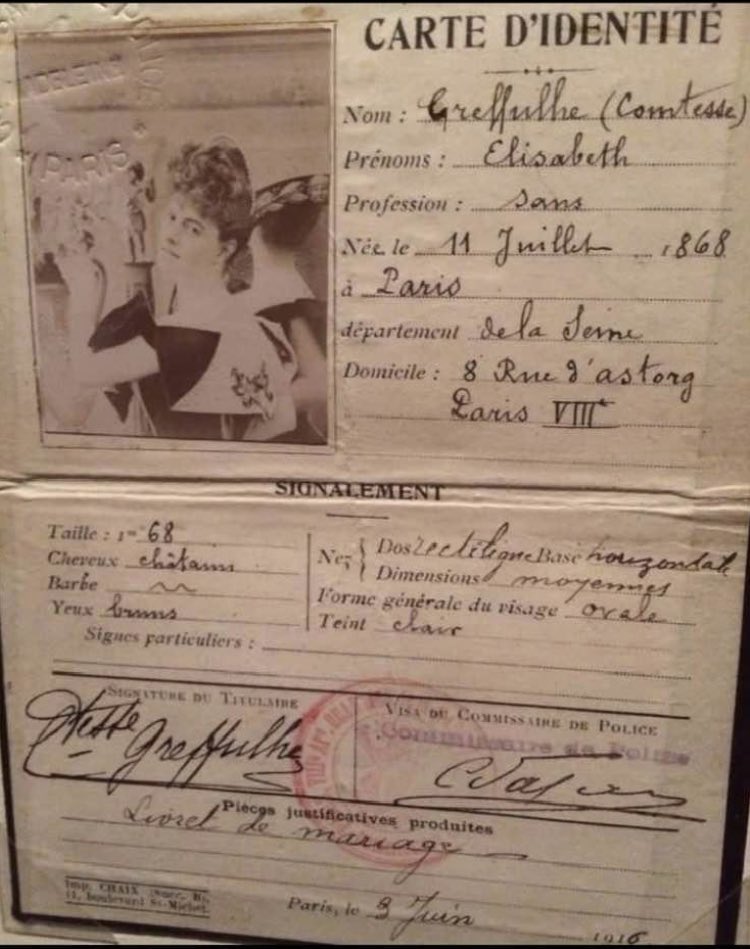 MADELEINE
PARIS
CARTE D'IDENTITÉ
Nom : Greffulhe (Comtesse)
Prénoms : Elisabeth
Profession : sans
Née le 11 Juillet 1868
à Paris
département de la Seine
Domicile : 8 Rue d'astorg
Paris VIIIe
SIGNALEMENT
Taille : 1m 68
Cheveux châtains
Barbe
Yeux bruns
Signes particuliers :
Nez { Dos rectiligne Base horizontale
Dimensions moyennes
Forme générale du visage ovale
Teint clair
SIGNATURE DU TITULAIRE
Ctesse Greffulhe
VISA DU COMMISSAIRE DE POLICE
Commissaire de Police
Pièces justificatives produites
Livret de mariage
Imp. CHAIX (Succ. B),
11, boulevard St-Michel.
Paris, le 3 Juin 1916